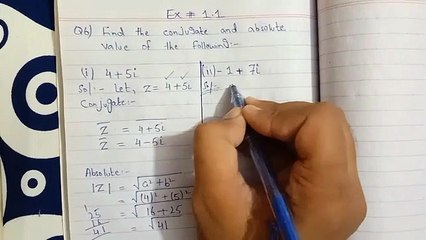 Ex # 1.1
Q6) Find the conjugate and absolute
value of the following:-
(i) 4+5i
Sol:- Let, Z = 4+5i
Conjugate:-
Z̅ = \overline{4+5i}
Z̅ = 4-5i
Absolute:-
|Z| = √a²+b²
= √(4)²+(5)²
= √16+25
= √41
1
25
16
41
(ii) -1 + 7i
Sol=